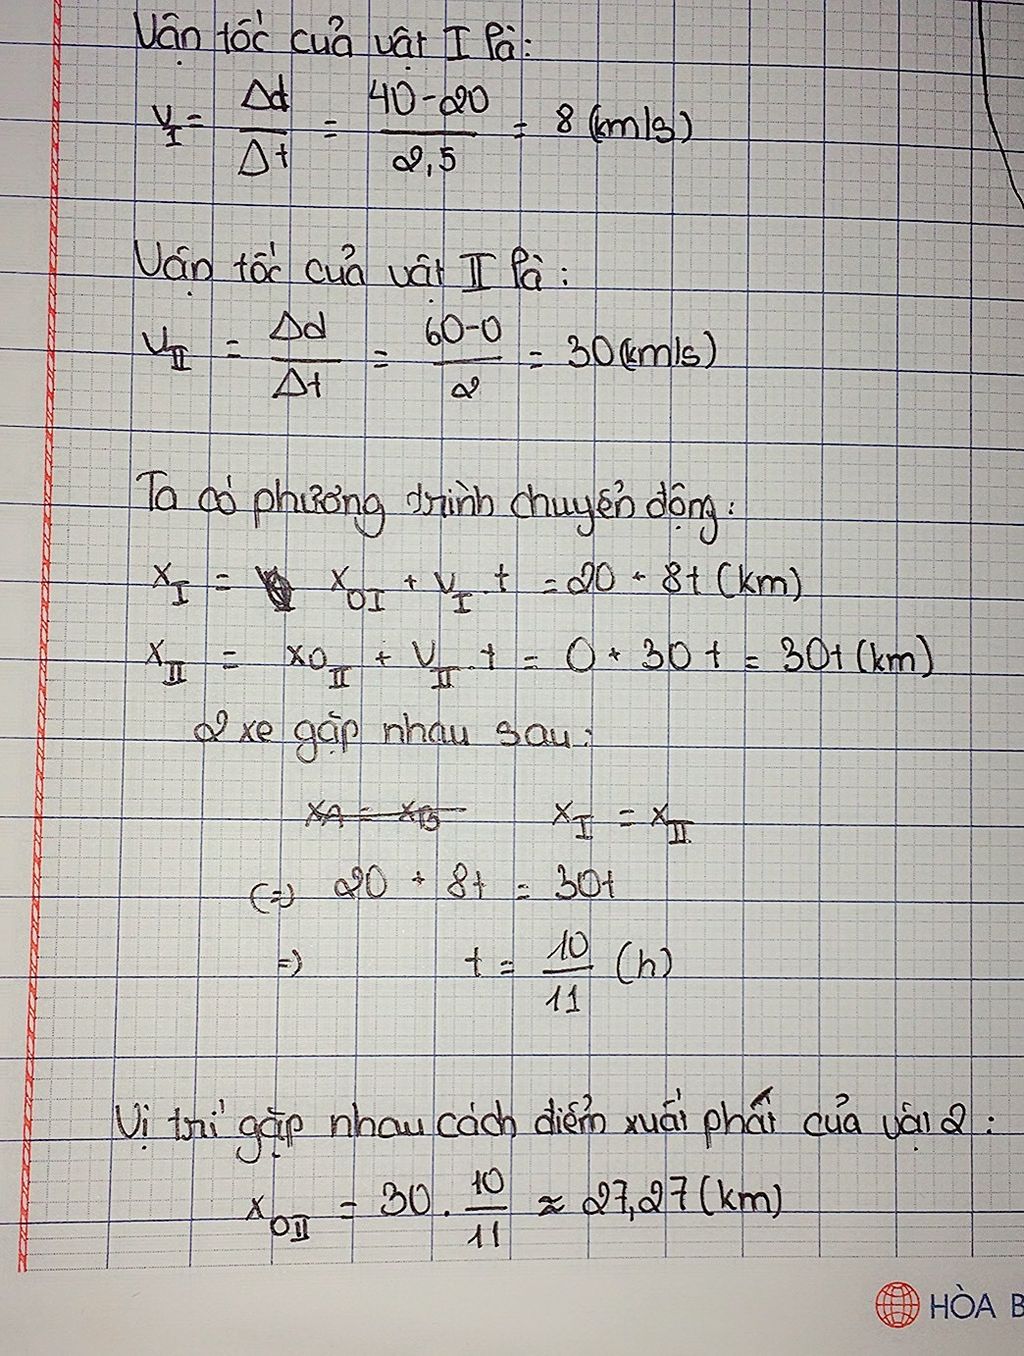 Vận tốc của vật I là:
v_I = Δd/Δt = (40-20)/2,5 = 8 (km/s)
Vận tốc của vật II là:
v_II = Δd/Δt = (60-0)/2 = 30 (km/s)
Ta có phương trình chuyển động:
x_I = x_0I + v_I . t = 20 + 8t (km)
x_II = x0_II + v_II . t = 0 + 30t = 30t (km)
2 xe gặp nhau sau:
xA = xB x_I = x_II
(=) 20 + 8t = 30t
=) t = 10/11 (h)
Vị trí gặp nhau cách điểm xuất phát của vật 2:
x_0II = 30 . 10/11 ≈ 27,27 (km)
HÒA B